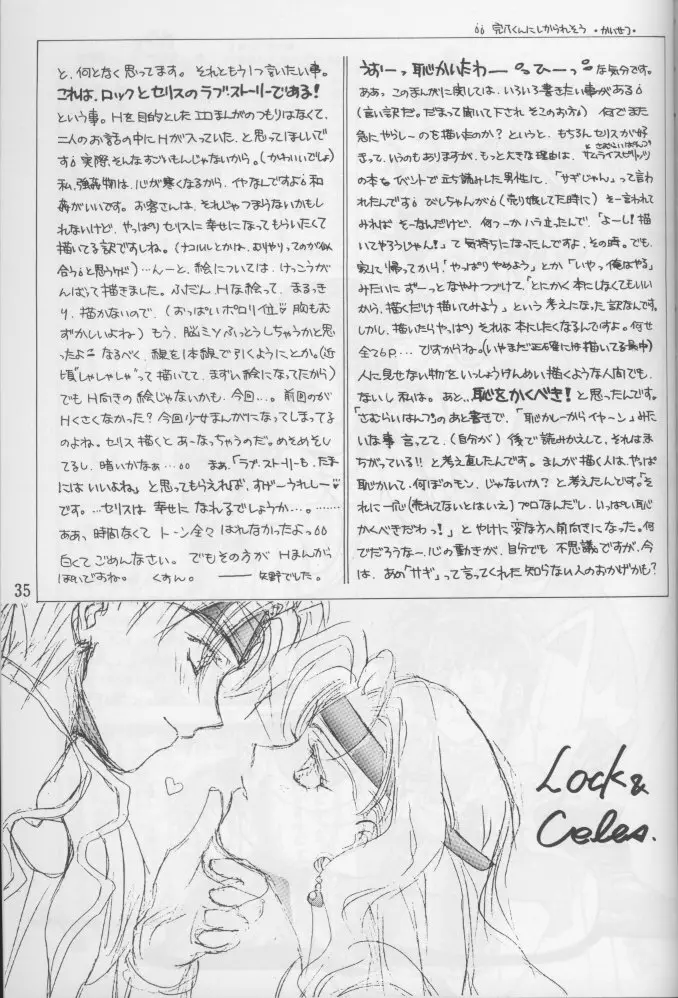 完ハくんにしかられそう ・かいせつ・
うおーっ恥かいたわー ひーっ な気分です。
ああっ、このまんがに関しては、いろいろ書きたい事がある
(言い訳だ。だまって聞いて下され そこのお方) 何でまた
急にやらしーのを描いたのか？というと、もちろんセリスが好
きって、いうのもありますが、もっと大きな理由は、サムライスピリッツ
とさむらいはんつ
の本をイベントで立ち読みした男性に、「サギじゃん」って言わ
れたんです しがっ(売り娘してた時に) そー言われて
みれば そーなんだけど、何つーかハラ立ったんで、「よーし!描
いてやろうじゃん!」て気持ちになったんですよ、その時。でも、
家に帰ってから「やっぱりやめよう」とか「いやっ俺はやる」
みたいに ずーっとなやみつづけて、「とにかく本にしなくてもいい
から、描くだけ描いてみよう」という考えになった訳なんです。
しかし、描いたらやっぱり それは本にしたくなるんですよ。何せ
全て6P…ですからねぇ。(いやまだ正確には描いてる最中)
人に見せない物をいっしょうけんめい描くような人間でも、
ないし私は。あと..恥をかくべき!と思ったんです。
「さむらいはんつ」のあと書きで、「恥かしーからイヤーン」みた
いな事 言ってて、(自分が) 後で読みかえして、それはま
ちがっている!! と考え直したんです。まんが描く人は、やっぱ
恥かいて、何ぼのモン、じゃないか？と考えたんです。「そ
れに一応(売れてないとはいえ)プロなんだし、いっぱい恥
かくべきだわっ!」とやけに変な方へ前向きになった。何
でだろうなー、心の動きが、自分でも 不思議ですが、今
は、あの「サギ」って言ってくれた 知らない人のおかげかも？
と、何となく思ってます。それともう1つ言いたい事。
これは、ロックとセリスのラブ・ストーリーである!
という事。Hを目的としたエロまんがのつもりはなくて、
二人のお話の中にHが入っていた、と思ってほしいで
す 実際、そんなすごいもんじゃないから。(かわいいでしょ)
私、強姦物は、心が寒くなるから、イヤなんですよ 和
姦がいいです。お客さんは、それじゃつまらないかもし
れないけど、やっぱりセリスに幸せになってもらいたくて
描いてる訳ですしね。(ナコルルとかは、むりやりってのが似
合うと思うケド)…んーと、絵については、けっこうが
んばって描きました。ふだん Hな絵って、まるっき
り、描かないので、(おっぱいポロリ位♡ 胸もむ
ずかしいよね) もう、脳ミソふっとうしちゃうかと思
ったよ なるべく、線を1本線で引くようにとか。(近
頃"しゃしゃしゃ"って描いてて、まずい絵になってたから)
でも H向きの絵じゃないかも、今回…。前回のが
Hくさくなかった？今回少女まんがになってしまってる
のよね。セリス描くと あーなっちゃうのだ。めそめそし
てるし、暗いかなぁ… まぁ、「ラブ・ストーリーも、たま
にはいいよね」と思ってもらえれば、すげーうれしー♡
です。…セリスは 幸せに なれるでしょうか…。………
ああ、時間なくて トーン全々 はれなかったよっ
白くて ごめんなさい。でもその方が Hまんがっ
ぽいですね。 くすん。 ――矢野でした。
35
Lock &
Celes.